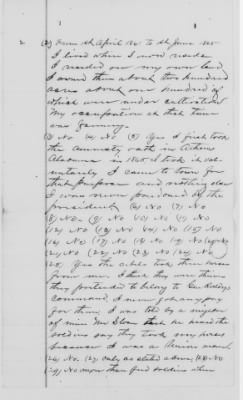 2 (2) From 1st April 1861 to 1st June 1865
I lived where I now reside
I resided on my own land
I owned then about two hundred
acres about one hundred of
which were under cultivation
My occupation at that time
was farming.
(3) No (4) No (5) Yes I first took
the amnesty oath in Athens
Alabama in 1865 I took it vol-
untarily I came to town for
that purpose and nothing else
I was never pardoned by the
president (6) No (7) No
(8) No (9) No (10) No (11) No
(12) No (13) No (14) No (15) No
(16) No (17) No (18) No (19) No
(21) No (22) No (23) No (24) No
(25) Yes the rebs took three
from me. I think they were
they pretended to belong to Gen Roddy's
command, I never got any pay
for them, I was told by a neighbor
of mine Mr Sloan that he heard the
soldiers say they took my
because I was a Union man
(26) No. (27) only as stated above, (28) No
(29) No more than feed soldiers when